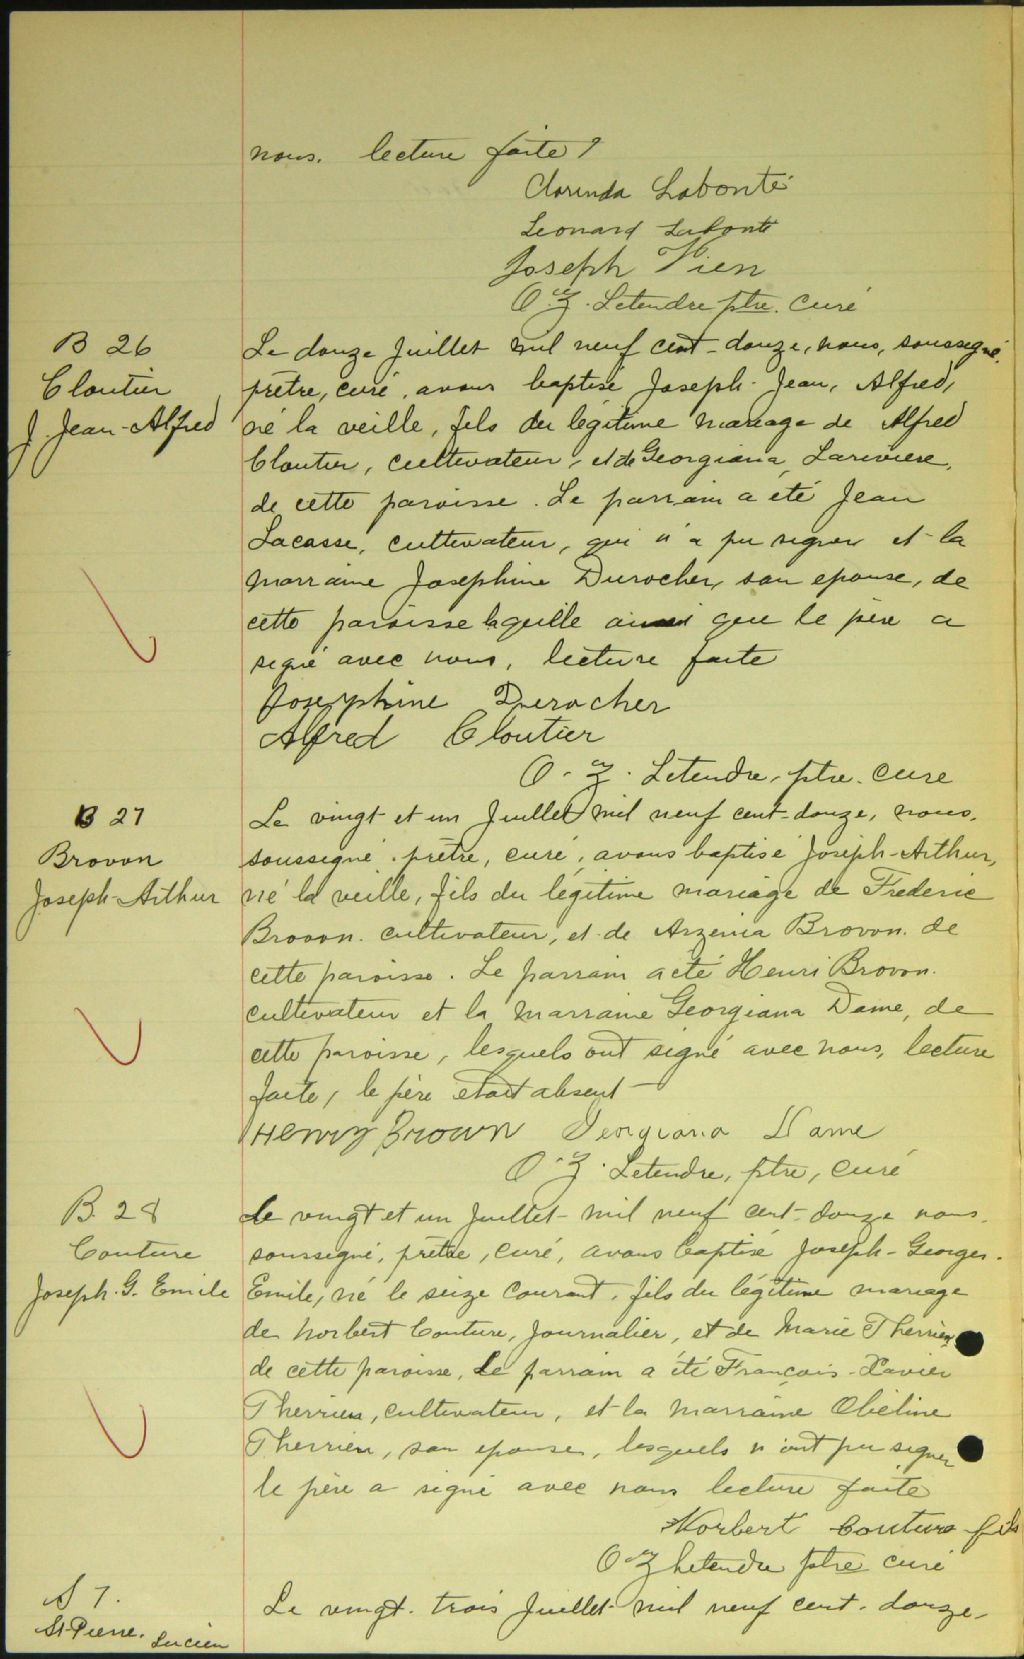 nous. lecture faite /
Clorinda Labonté
Leonard Labonté
Joseph Vien
O. Z. Letendre ptre. curé
B 26
Cloutier
J. Jean-Alfred
Le douze Juillet mil neuf cent-douze, nous, soussigné,
prêtre, curé, avons baptisé Joseph-Jean, Alfred,
né la veille, fils du légitime mariage de Alfred
Cloutier, cultivateur, et de Georgiana Lariviere,
de cette paroisse. Le parrain a été Jean
Lacasse, cultivateur, qui n'a pu signer et la
marraine Josephine Durocher, son epouse, de
cette paroisse laquelle ainsi que le père a
signé avec nous, lecture faite
Josephine Derocher
Alfred Cloutier
O. Z. Letendre, ptre. cure
B 27
Brovon
Joseph-Arthur
Le vingt et un Juillet mil neuf cent-douze, nous,
soussigné, prêtre, curé, avons baptisé Joseph-Arthur,
né la veille, fils du légitime mariage de Frederic
Brovon. cultivateur, et de Arzenia Brovon. de
cette paroisse. Le parrain a été Henri Brovon.
cultivateur et la marraine Georgiana Dame, de
cette paroisse, lesquels ont signé avec nous, lecture
faite, le père etait absent
Henry Brown Georgiana Dame
O. Z. Letendre, ptre, curé
B. 28
Couture
Joseph. G. Emile
Le vingt et un Juillet mil neuf cent-douze nous.
soussigné, prêtre, curé, avons baptisé Joseph-Georges-
Emile, né le seize courant, fils du légitime mariage
de Norbert Couture, Journalier, et de Marie Therrien
de cette paroisse, Le parrain a été François-Xavier
Therrien, cultivateur, et la marraine Obéline
Therrien, son epouse, lesquels n'ont pu signer
le père a signé avec nous lecture faite
Norbert Couture fils
O. Z Letendre ptre curé
S 7.
St-Pierre. Lucien
Le vingt-trois Juillet mil neuf cent-douze-